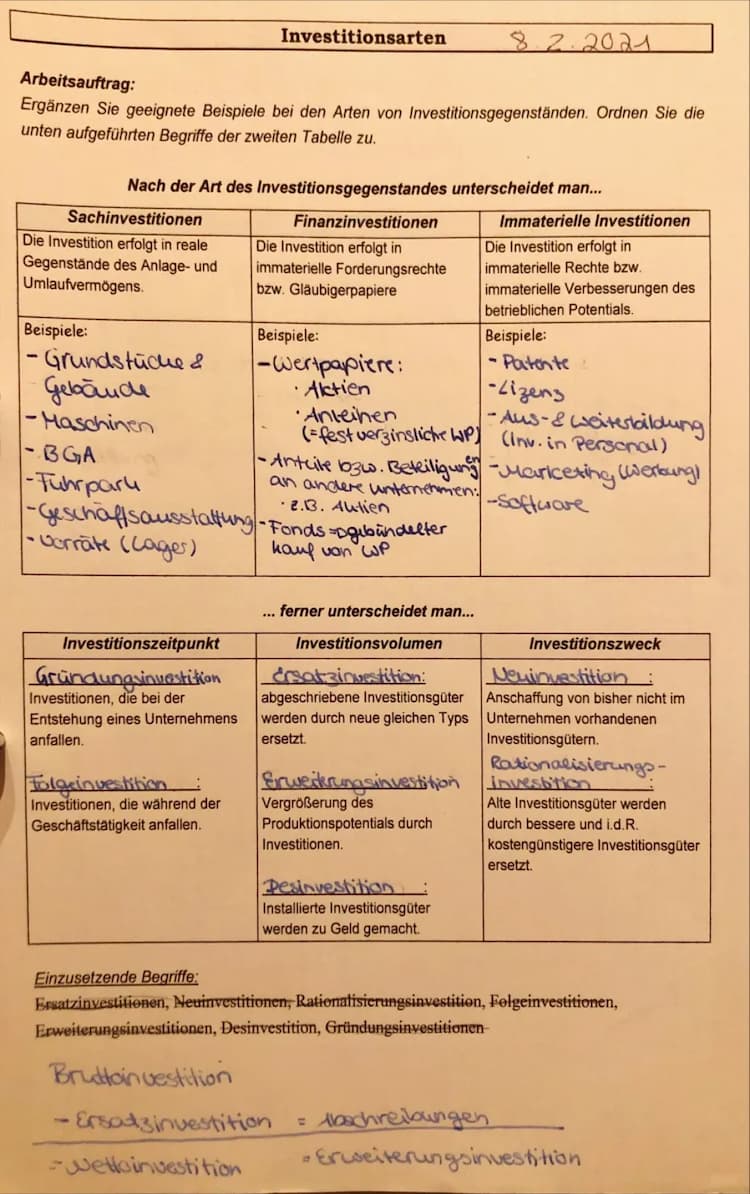 Investitionsarten 8.2.2021
Arbeitsauftrag:
Ergänzen Sie geeignete Beispiele bei den Arten von Investitionsgegenständen. Ordnen Sie die
unten aufgeführten Begriffe der zweiten Tabelle zu.
Nach der Art des Investitionsgegenstandes unterscheidet man...
Sachinvestitionen
Die Investition erfolgt in reale
Gegenstände des Anlage- und
Umlaufvermögens.
Beispiele:
- Grundstücke &
Gebäude
- Maschinen
- BGA
- Fuhrpark
- Geschäftsausstattung
- Vorräte (Lager)
Finanzinvestitionen
Die Investition erfolgt in
immaterielle Forderungsrechte
bzw. Gläubigerpapiere
Beispiele:
- Wertpapiere:
· Aktien
· Anleihen
(= festverzinsliche WP)
- Anteile bzw. Beteiligungen
an andere Unternehmen:
· z.B. Aktien
- Fonds => gebündelter
Kauf von WP
Immaterielle Investitionen
Die Investition erfolgt in
immaterielle Rechte bzw.
immaterielle Verbesserungen des
betrieblichen Potentials.
Beispiele:
- Patente
- Lizens
- Aus- & Weiterbildung
(Inv. in Personal)
- Marketing (Werbung)
- Software
... ferner unterscheidet man...
Investitionszeitpunkt
Gründungsinvestition
Investitionen, die bei der
Entstehung eines Unternehmens
anfallen.
Folgeinvestition :
Investitionen, die während der
Geschäftstätigkeit anfallen.
Investitionsvolumen
Ersatzinvestition:
abgeschriebene Investitionsgüter
werden durch neue gleichen Typs
ersetzt.
Erweiterungsinvestition
Vergrößerung des
Produktionspotentials durch
Investitionen.
Desinvestition :
Installierte Investitionsgüter
werden zu Geld gemacht.
Investitionszweck
Neuinvestition :
Anschaffung von bisher nicht im
Unternehmen vorhandenen
Investitionsgütern.
Rationalisierungs-
investition :
Alte Investitionsgüter werden
durch bessere und i.d.R.
kostengünstigere Investitionsgüter
ersetzt.
Einzusetzende Begriffe:
Ersatzinvestitionen, Neuinvestitionen, Rationalisierungsinvestition, Folgeinvestitionen,
Erweiterungsinvestitionen, Desinvestition, Gründungsinvestitionen
Bruttoinvestition
- Ersatzinvestition = Abschreibungen
= Nettoinvestition = Erweiterungsinvestition